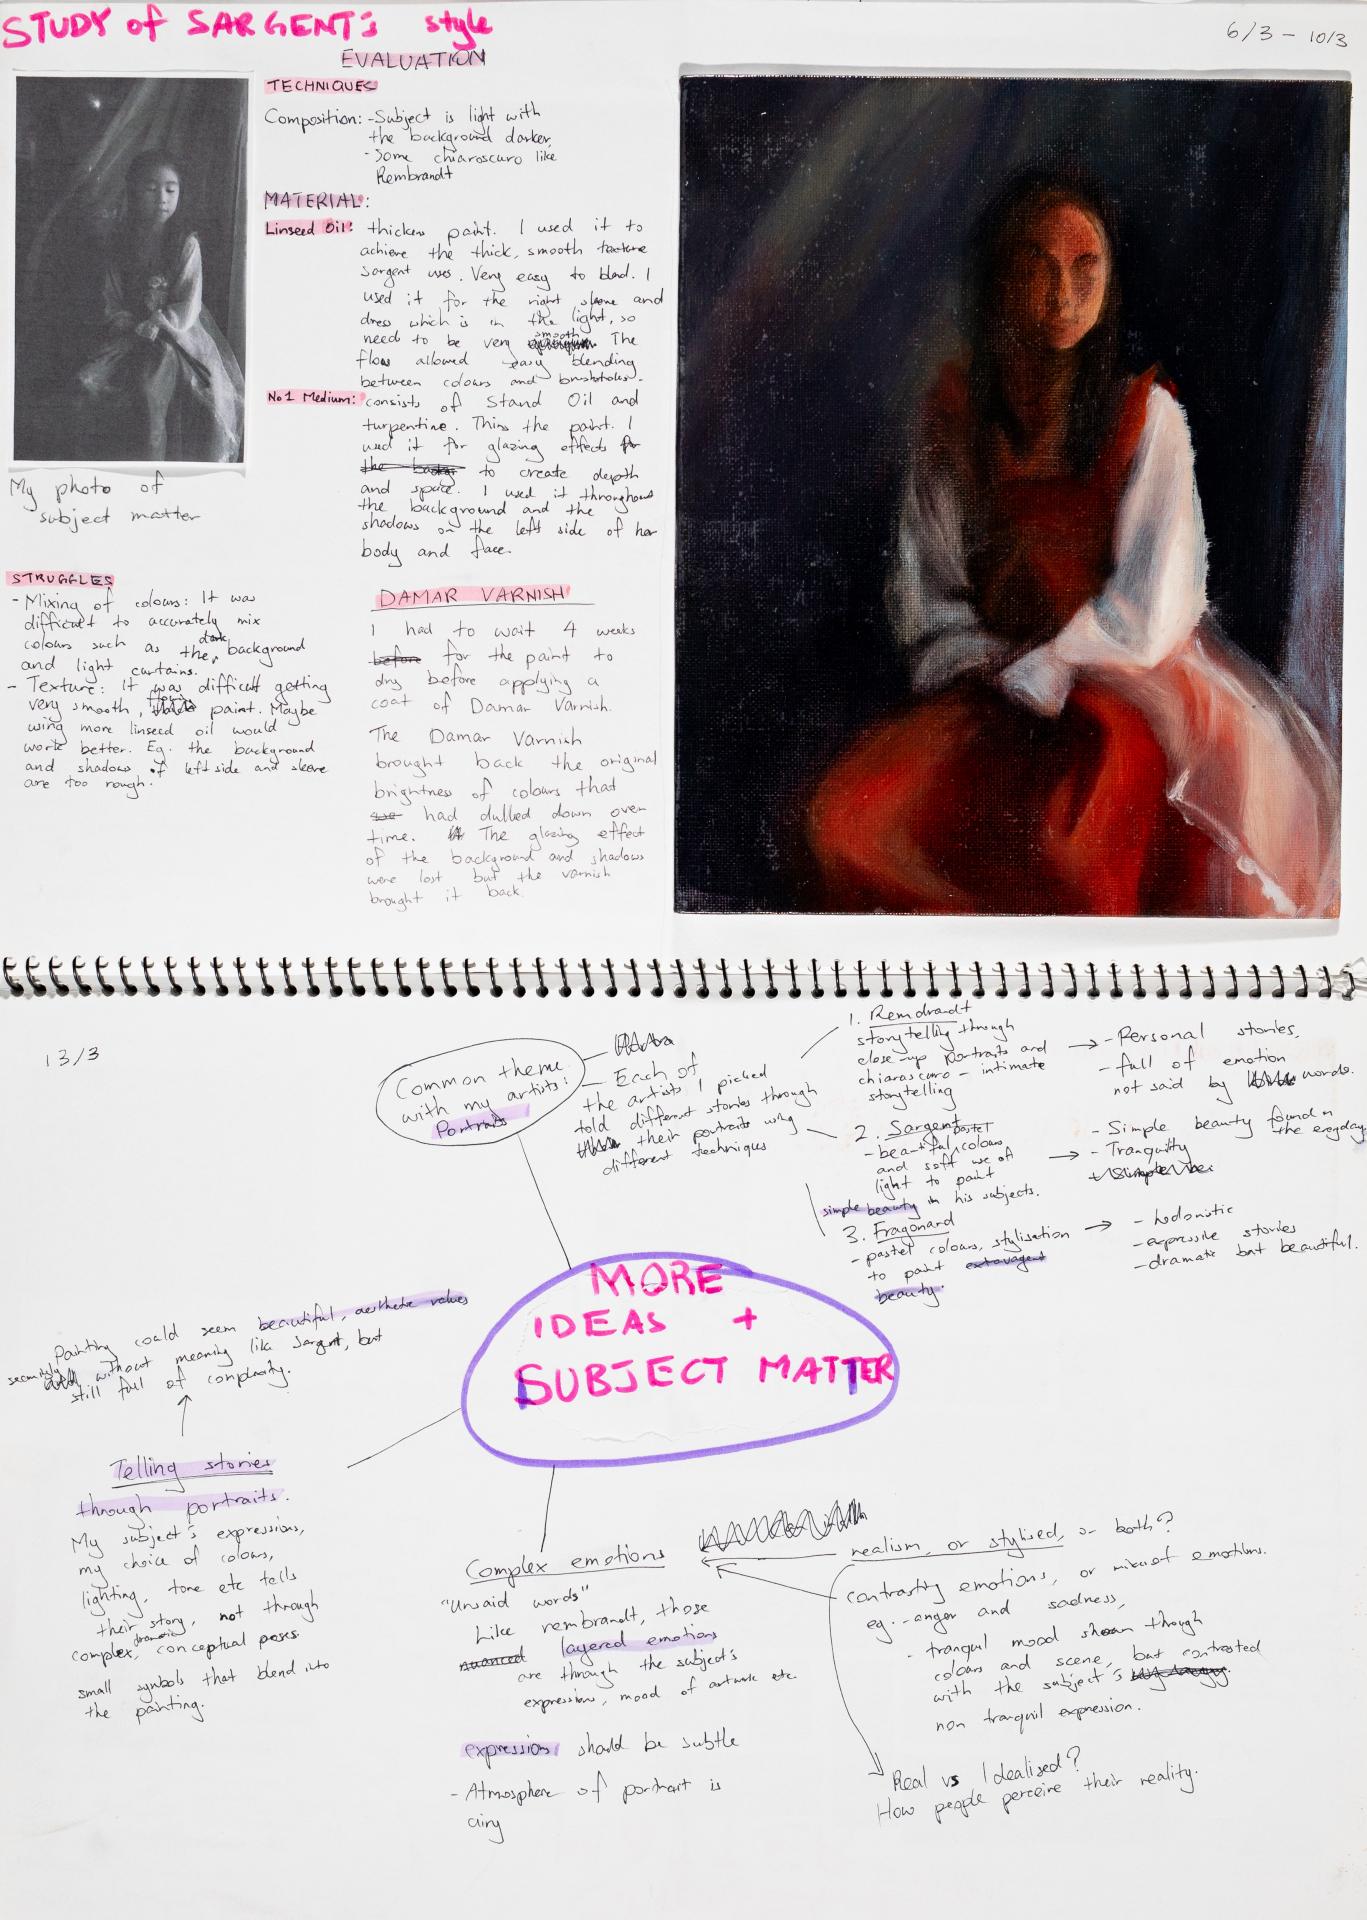 STUDY of SARGENT's style
6/3 - 10/3
EVALUATION
TECHNIQUES
Composition: - Subject is light with
the background darker,
- Some chiaroscuro like
Rembrandt
MATERIAL:
Linseed Oil: thickens paint. I used it to
achieve the thick, smooth texture
Sargent uses. Very easy to blend. I
used it for the right sleeve and
dress which is in the light, so
need to be very smooth. The
flow allowed easy blending
between colours and brushstrokes.
No 1 Medium: consists of Stand Oil and
turpentine. Thins the paint. I
used it for glazing effects for
the backgr to create depth
and space. I used it throughout
the background and the
shadows on the left side of her
body and face.
My photo of
subject matter
STRUGGLES
- Mixing of colours: It was
difficult to accurately mix
colours such as the dark background
and light curtains.
- Texture: It was difficult getting
very smooth, paint. Maybe
using more linseed oil would
work better. Eg. the background
and shadows of left side and sleeve
are too rough.
DAMAR VARNISH
I had to wait 4 weeks
before for the paint to
dry before applying a
coat of Damar Varnish.
The Damar Varnish
brought back the original
brightness of colours that
had dulled down over
time. The glazing effect
of the background and shadows
were lost but the varnish
brought it back.
13/3
Common theme
with my artists:
Portraits
- Each of
the artists I picked
told different stories through
their portraits using
different techniques
1. Remdradt
storytelling through
close-up portraits and
chiaroscuro - intimate
storytelling
→ - Personal stories,
- full of emotion
not said by words.
2. Sargent
- beautiful, pastel colours
and soft use of
light to paint
simple beauty in his subjects.
→ - Simple beauty found in
the everyday
- Tranquility
3. Fragonard
- pastel colours, stylisation
to paint extravagent
beauty.
→ - hedonistic
- expressive stories
- dramatic but beautiful.
MORE
IDEAS +
SUBJECT MATTER
Painting could seem beautiful, aesthetic values
seemingly without meaning like Sargent, but
still full of complexity.
Telling stories
through portraits.
My subject's expressions,
my choice of colours,
lighting, tone etc tells
their story, not through
complex, dramatic, conceptual poses.
small symbols that blend into
the painting.
Complex emotions
"Unsaid words"
Like rembrandt, those
nuanced layered emotions
are through the subject's
expressions, mood of artwork etc.
expressions should be subtle
- Atmosphere of portrait is
airy
realism, or stylised, or both?
contrasting emotions, or mix of emotions.
eg: - anger and sadness,
- tranquil mood shown through
colours and scene, but contrasted
with the subject's
non tranquil expression.
Real vs Idealised?
How people perceive their reality.